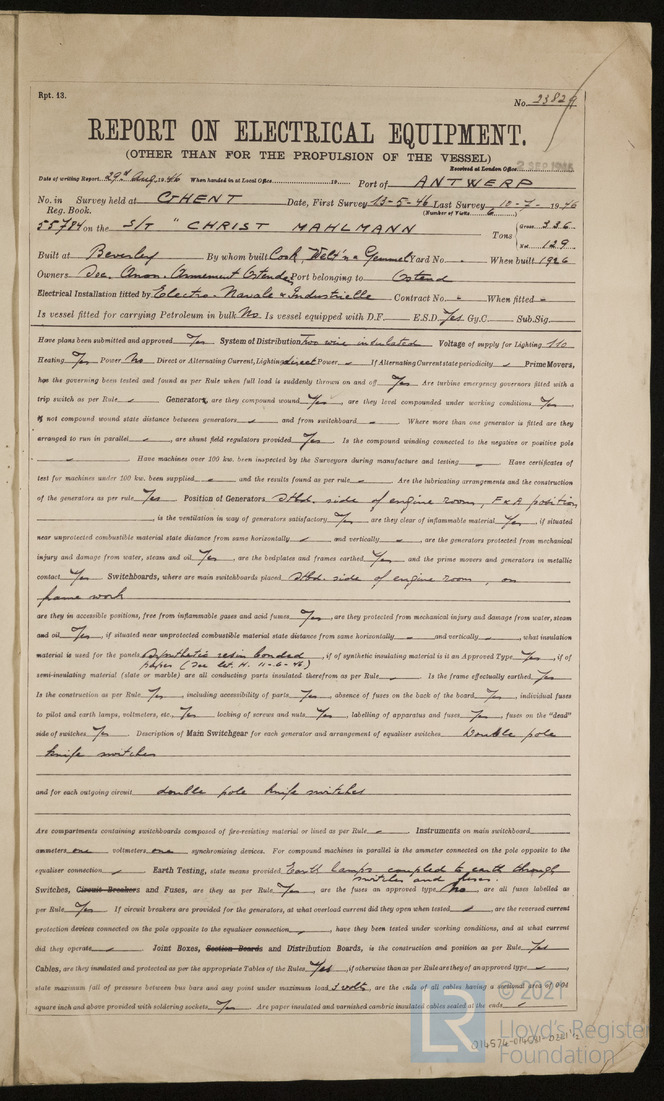 Rpt. 13.
No. 23829
REPORT ON ELECTRICAL EQUIPMENT.
(OTHER THAN FOR THE PROPULSION OF THE VESSEL)
Received at London Office 2 SEP 1946
Date of writing Report 29th Aug. 1946 When handed in at Local Office 19 Port of ANTWERP
No. in Survey held at GHENT Date, First Survey 13-5-46 Last Survey 10-7-1946
Reg. Book. (Number of Visits 6)
55784 on the S/T " CHRIST MAHLMANN Tons Gross 336
Net 129
Built at Beverley By whom built Cook, Welt'n & Gemmel Yard No. - When built 1926
Owners Soc. Anon. Armement Ostendais Port belonging to Ostend
Electrical Installation fitted by Electro-Navale & Industrielle Contract No. - When fitted -
Is vessel fitted for carrying Petroleum in bulk No. Is vessel equipped with D.F. E.S.D. Yes Gy.C. Sub.Sig.
Have plans been submitted and approved Yes System of Distribution Two wire insulated Voltage of supply for Lighting 110
Heating Yes Power No Direct or Alternating Current, Lighting direct Power - If Alternating Current state periodicity - Prime Movers,
has the governing been tested and found as per Rule when full load is suddenly thrown on and off Yes Are turbine emergency governors fitted with a
trip switch as per Rule - Generators, are they compound wound Yes, are they level compounded under working conditions Yes,
if not compound wound state distance between generators - and from switchboard - Where more than one generator is fitted are they
arranged to run in parallel -, are shunt field regulators provided Yes Is the compound winding connected to the negative or positive pole
- Have machines over 100 kw. been inspected by the Surveyors during manufacture and testing - Have certificates of
test for machines under 100 kw. been supplied - and the results found as per rule - Are the lubricating arrangements and the construction
of the generators as per rule Yes Position of Generators Stbd. side of engine room, F & A position
, is the ventilation in way of generators satisfactory Yes, are they clear of inflammable material Yes, if situated
near unprotected combustible material state distance from same horizontally - and vertically -, are the generators protected from mechanical
injury and damage from water, steam and oil Yes, are the bedplates and frames earthed Yes and the prime movers and generators in metallic
contact Yes Switchboards, where are main switchboards placed Stbd. side of engine room, on
frame work
are they in accessible positions, free from inflammable gases and acid fumes Yes, are they protected from mechanical injury and damage from water, steam
and oil Yes, if situated near unprotected combustible material state distance from same horizontally - and vertically -, what insulation
material is used for the panels Synthetic resin bonded, if of synthetic insulating material is it an Approved Type Yes, if of
paper (See let. H. 11-6-46)
semi-insulating material (slate or marble) are all conducting parts insulated therefrom as per Rule - Is the frame effectually earthed Yes
Is the construction as per Rule Yes, including accessibility of parts Yes, absence of fuses on the back of the board Yes, individual fuses
to pilot and earth lamps, voltmeters, etc. Yes locking of screws and nuts Yes, labelling of apparatus and fuses Yes, fuses on the "dead"
side of switches Yes. Description of Main Switchgear for each generator and arrangement of equaliser switches Double pole
knife switches
and for each outgoing circuit double pole knife switches
Are compartments containing switchboards composed of fire-resisting material or lined as per Rule - Instruments on main switchboard
ammeters one voltmeters one synchronising devices. For compound machines in parallel is the ammeter connected on the pole opposite to the
equaliser connection - Earth Testing, state means provided Earth lamps coupled to earth through
switches and fuses.
Switches, Circuit Breakers and Fuses, are they as per Rule Yes, are the fuses an approved type No, are all fuses labelled as
per Rule Yes If circuit breakers are provided for the generators, at what overload current did they open when tested -, are the reversed current
protection devices connected on the pole opposite to the equaliser connection -, have they been tested under working conditions, and at what current
did they operate - Joint Boxes, Section Boards and Distribution Boards, is the construction and position as per Rule Yes
Cables, are they insulated and protected as per the appropriate Tables of the Rules Yes, if otherwise than as per Rule are they of an approved type -,
state maximum fall of pressure between bus bars and any point under maximum load 3 volts, are the ends of all cables having a sectional area of 0.04
square inch and above provided with soldering sockets Yes Are paper insulated and varnished cambric insulated cables sealed at the ends -
© 2021
Lloyd's Register
Foundation